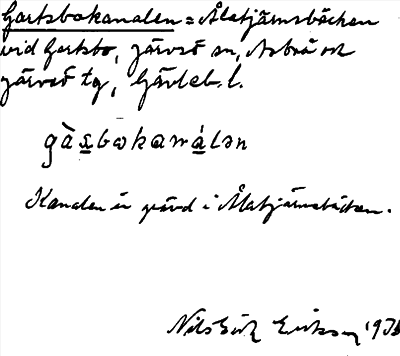 Gartsbokanalen = Ålatjärnsbäcken
vid Gartsbo, Järvsö sn, Arbrå och
Järvsö tg, Gävleb. l.
gàsbokanálen
Kanalen är grävd i Ålatjärnsbäcken.
Nils Erik Eriksson